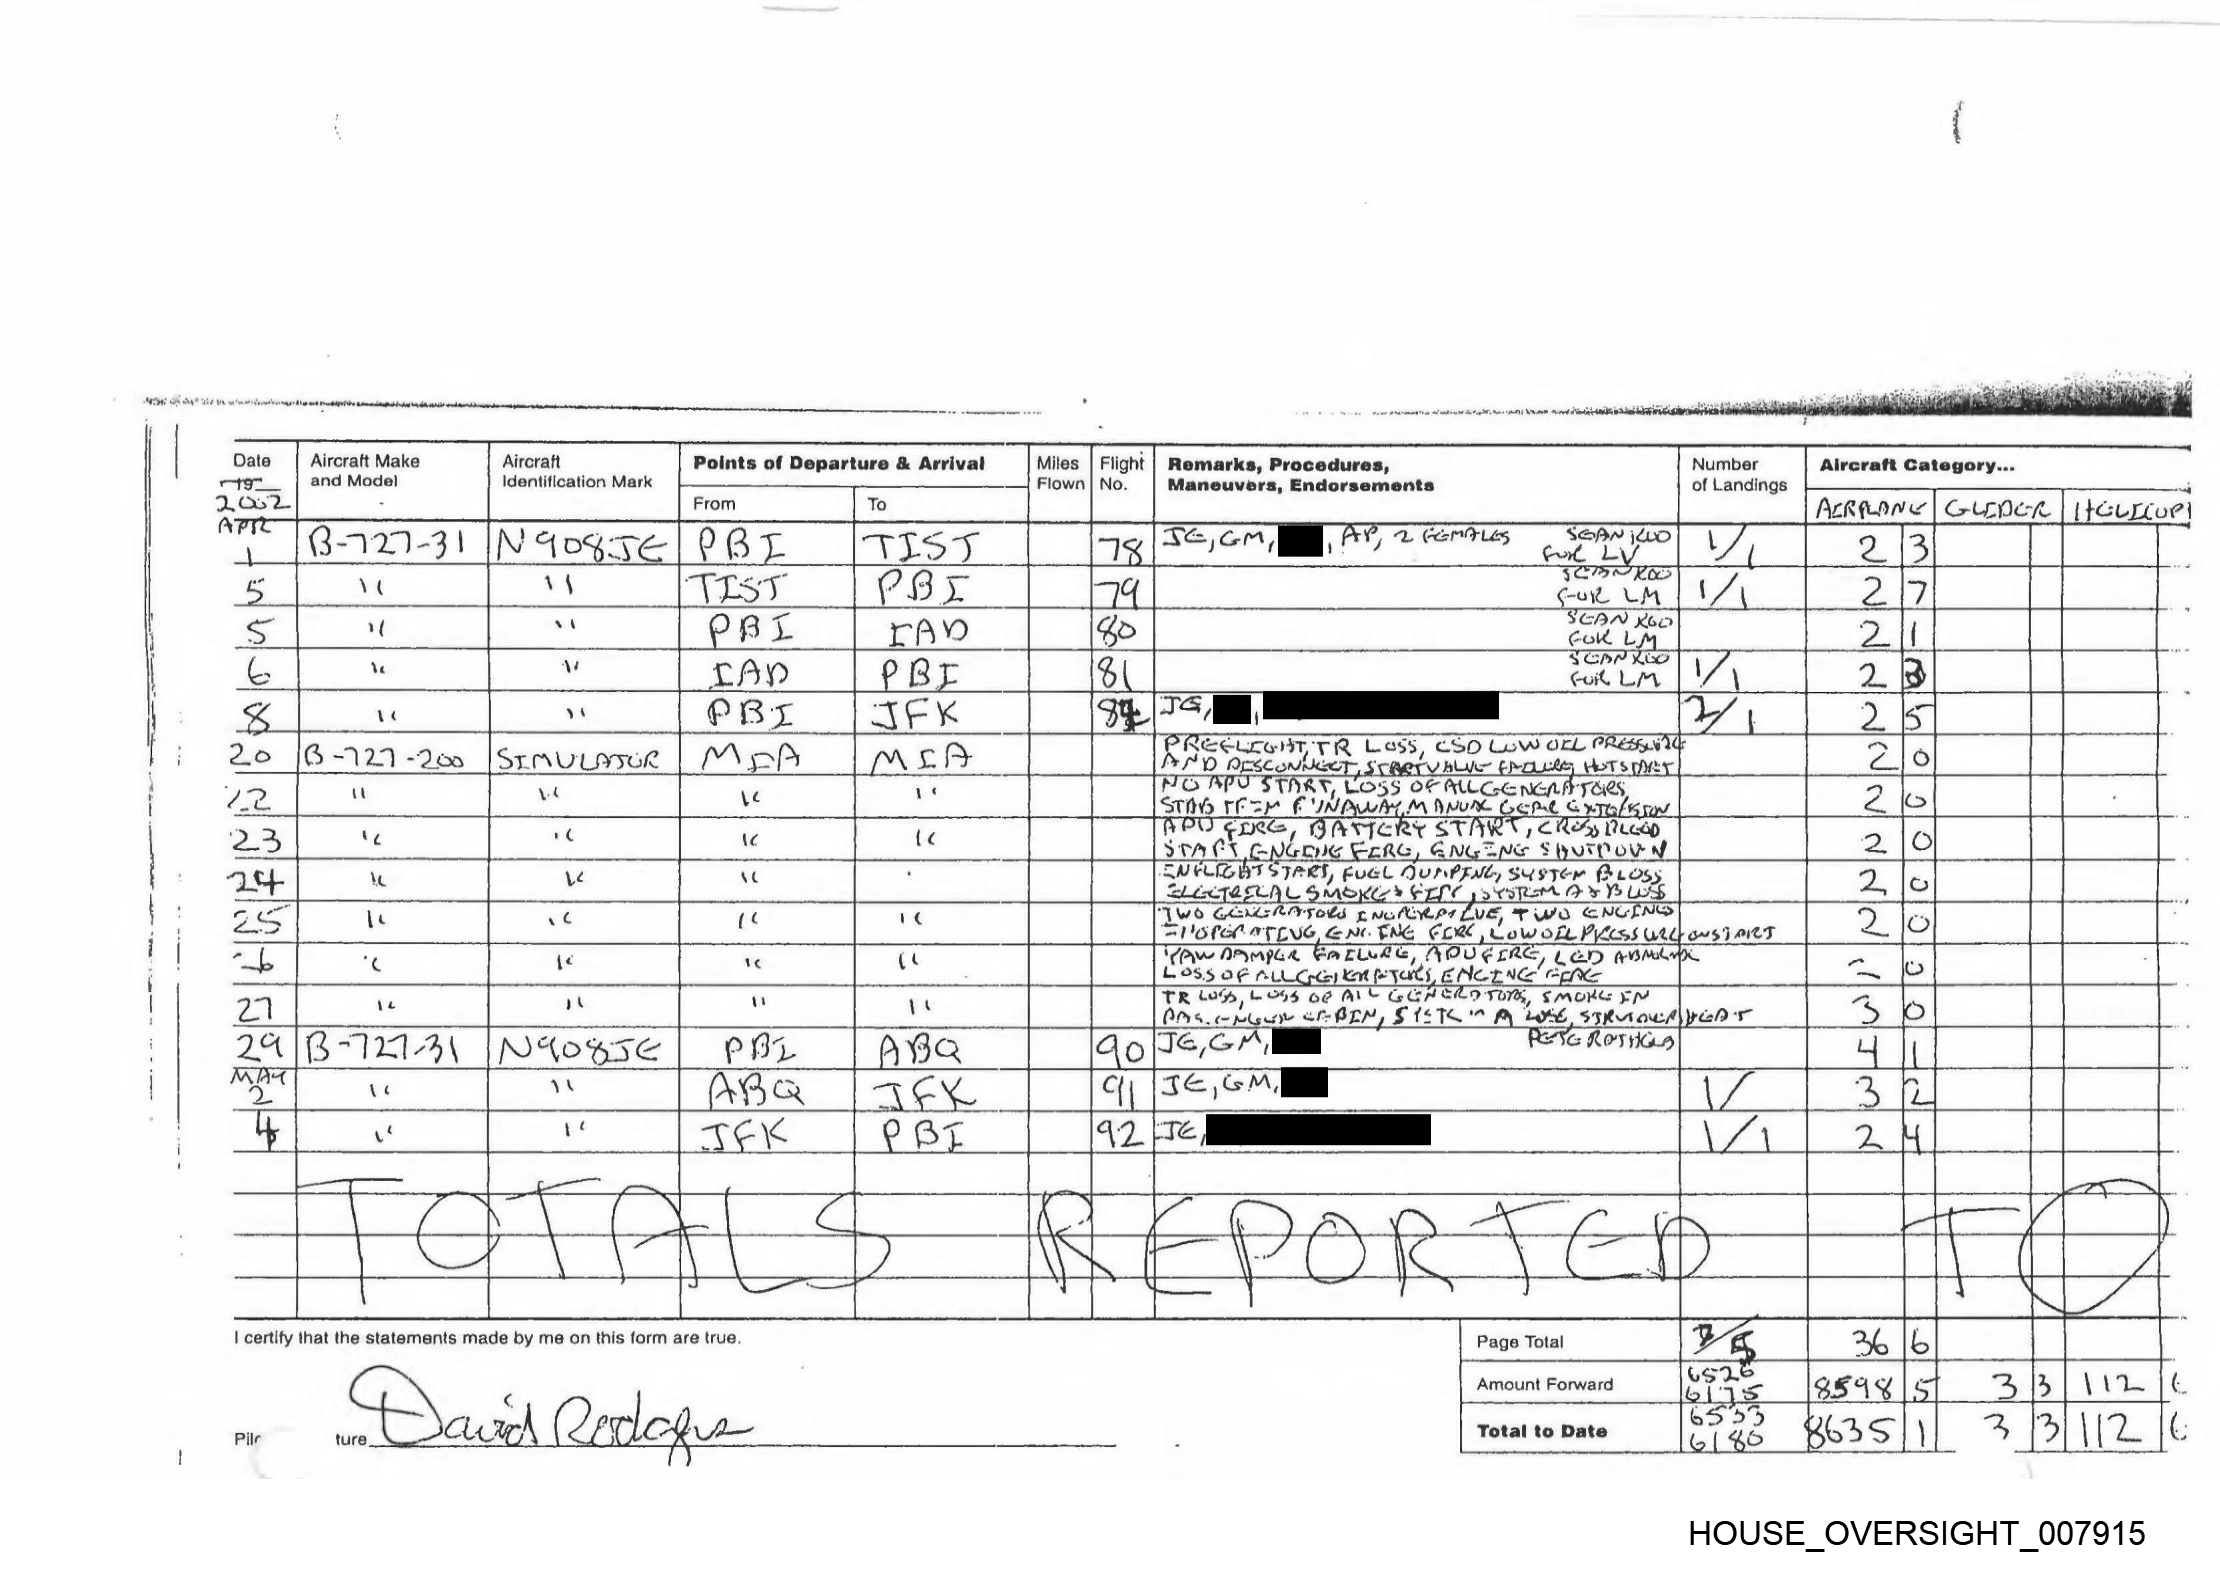 Date Aircraft Make and Model Aircraft Identification Mark Points of Departure & Arrival Miles Flown Flight No. Remarks, Procedures, Maneuvers, Endorsements Number of Landings Aircraft Category...
19
2002 From To AIRPLANE GLIDER HELICOP
APR
1 B-727-31 N908JE PBI TIST 78 JE, GM, , AP, 2 FEMALES SEAN KOO FOR LV 1/1 2 3
5 " " TIST PBI 79 SEAN KOO FOR LM 1/1 2 7
5 " " PBI IAD 80 SEAN KOO FOR LM 2 1
6 " " IAD PBI 81 SEAN KOO FOR LM 1/1 2
8 " " PBI JFK JE, , 2/1 2 5
20 B-727-200 SIMULATOR MIA MIA PREFLIGHT, TR LOSS, CSD LOW OIL PRESSURE
AND DISCONNECT, START VALVE FAILURE, HOT START 2 0
22 " " " " NO APU START, LOSS OF ALL GENERATORS,
STAB TRIM RUNAWAY, MANUAL GEAR EXTENSION 2 0
23 " " " " APU FIRE, BATTERY START, CROSS BLEED
START, ENGINE FIRE, ENGINE SHUTDOWN 2 0
24 " " " INFLIGHT START, FUEL DUMPING, SYSTEM B LOSS
ELECTRICAL SMOKE & FIRE, SYSTEM A & B LOSS 2 0
25 " " " " TWO GENERATORS INOPERATIVE, TWO ENGINES
INOPERATING, ENGINE FIRE, LOW OIL PRESSURE ON START 2 0
26 " " " " YAW DAMPER FAILURE, APU FIRE, LED
LOSS OF ALL GENERATORS, ENGINE FIRE 2 0
27 " " " " TR LOSS, LOSS OF ALL GENERATORS, SMOKE IN
PASSENGER CABIN, SYSTEM A LOSS, STRUT OVERHEAT 3 0
29 B-727-31 N908JE PBI ABQ 90 JE, GM, PETE RATHGEB 4 1
MAY
2 " " ABQ JFK 91 JE, GM, 1/ 3 2
4 " " JFK PBI 92 JE, 1/1 2 4
TOTALS REPORTED TO
I certify that the statements made by me on this form are true.
Page Total 7/5 36 6
Amount Forward 6526 6175 8598 5 3 3 112 6
Total to Date 6533 6180 8635 1 3 3 112 6
ture David Rodgers
HOUSE_OVERSIGHT_007915